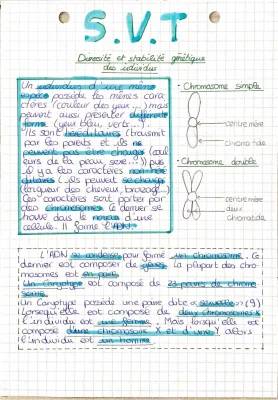 S.V.T
Diversité et stabilité génétique
des individus
Un individu d'une même
espèce possède les mêmes cara-
ctères (couleur des yeux...) mais
peuvent aussi présenter différente
forme (yeux bleu, verts...)
Ils sont héréditaires (transmit
par les parents et ils ne
peuvent pas être changés (coul
eurs de la peau, sexe..)) puis
il y a les caractères non héré
ditaires (ils peuvent se changés
(longueur des cheveux, bronzage...)
Ces caractères sont portés par
des chromosomes. Ce dernier se
trouve dans le noyau d'une
cellule. Il forme l'ADN.
• Chromosome simple
centromère
chromatide
• Chromosome double
centromère
deux
chromatides
L'ADN se condense pour formé un chromosome. Ce
dernier est composé de gènes. La plupart des chro-
mosomes est en paire.
Un Caryotype est composé de 23 paires de chromo
some.
Un Caryotype possède une paire dite « sexuelle » (9)
Lorsqu'elle est composé de deux Chromosomes X
l'individu est une femme. Mais lorsqu'elle est
composé d'une chromosome X et d'une Y alors
l'individu est un homme.